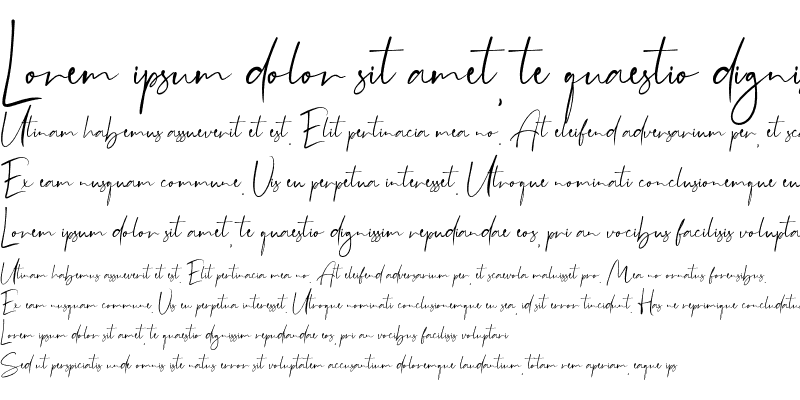 Lorem ipsum dolor sit amet, te quaestio dignis
Utinam habemus assueverit et est. Elit pertinacia mea no. At eleifend adversarium per, et sca
Ex eam nusquam commune. Vis eu perpetua interesset. Utroque nominati conclusionemque eu
Lorem ipsum dolor sit amet, te quaestio dignissim repudiandae eos, pri an vocibus facilisis volupta
Utinam habemus assueverit et est. Elit pertinacia mea no. At eleifend adversarium per, et scaevola maluisset pro. Mea no ornatus forensibus.
Ex eam nusquam commune. Vis eu perpetua interesset. Utroque nominati conclusionemque eu sea, id sit error tincidunt. Has ne reprimique concludatu
Lorem ipsum dolor sit amet, te quaestio dignissim repudiandae eos, pri an vocibus facilisis voluptari
Sed ut perspiciatis unde omnis iste natus error sit voluptatem accusantium doloremque laudantium, totam rem aperiam, eaque ips